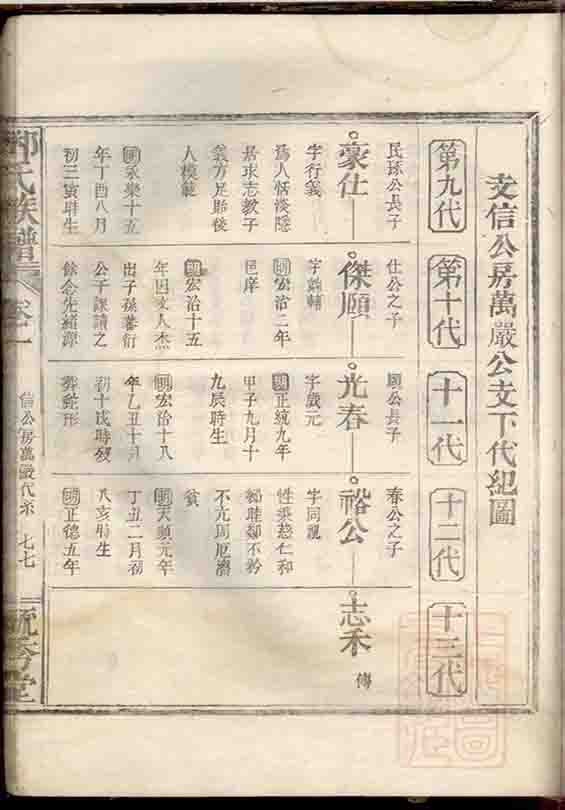 文信公房萬嚴公支下代紀圖
第九代
第十代
十一代
十二代
十三代
民珎公長子
豪仕
字行義
為人恬淡隱
居求志教子
義方足貽後
人模範
明永樂十五
年丁酉八月
初三寅時生
仕公之子
傑順
字
明宏治二年
邑庠
明宏治十五
年因文人杰
出子孫蕃衍
公子課讀之
餘念先緒源
順公長子
光春
字歲元
明正統九年
甲子九月十
九辰時生
明宏治十八
年乙丑十月
初十戌時歿
葬蛇形
春公之子
裕公
字同寬
性秉慈仁和
鄰不矜
不亢周厄濟
貧
明天順元年
丁丑二月初
八亥時生
明正德五年
志禾
傳
氏族譜
卷
信公房萬嚴代系
七七
堂